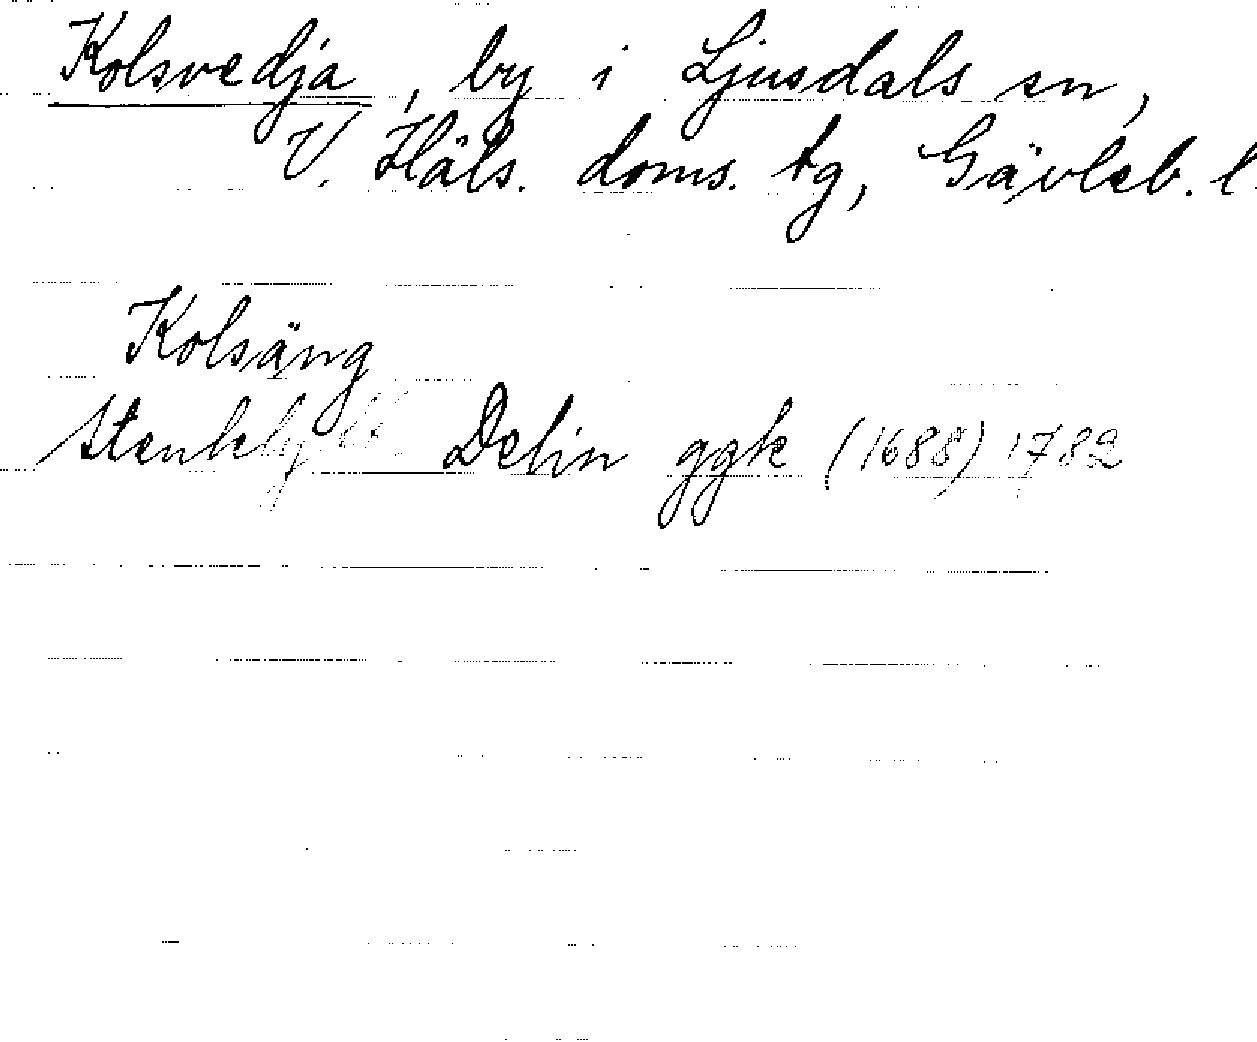 Kolsvedja, by i Ljusdals sn,
V. Häls. doms. tg, Gävleb. l.
Kolsäng
Delin ggk (1688) 1782